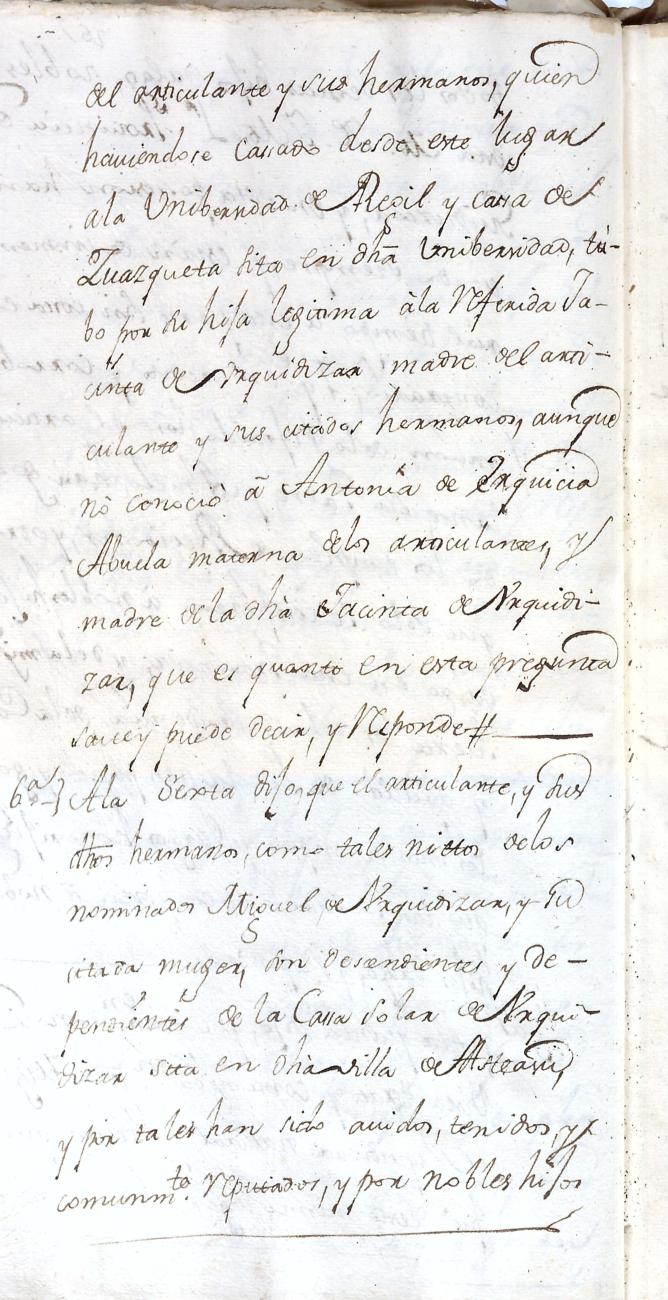 del articulante y sus hermanos, quien
haviendose Cassado desde este lugar
ala Unibersidad de Regil y cassa de
Zuazqueta sita en dha Unibersidad, tu-
bo por su hija legitima à la referida Ja-
cinta de Urquidizar madre del arti-
culante y sus citados hermanos, aunque
nò conociò à Antonia de Erquicia
Abuela materna delos articulantes, y
madre de la dha Jacinta de Urquidi-
zar, que es quanto en esta pregunta
save y puede decir, y responde #
6ª} Ala Sexta dijo, que el articulante, y sus
dhos hermanos, como tales nittos de los
nominados Miguel de Urquidizar, y su
citada muger, son descendientes y de-
pendientes de la Cassa solar de Urqui-
dizar sita en dha villa de Asteasu,
y por tales han sido avidos, tenidos, y
comunmte. reputados, y por nobles hijos